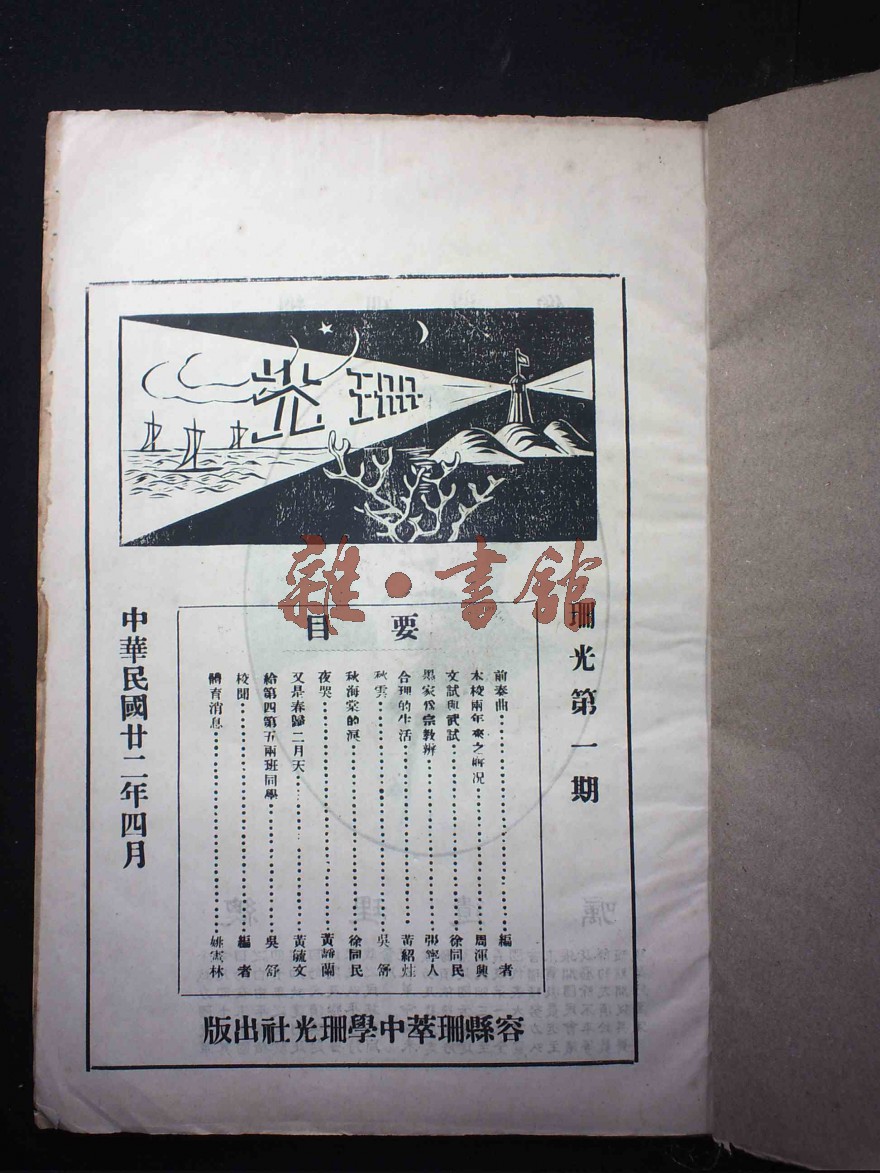 珊光
雜·書舘
珊光第一期
要目
前奏曲 編者
本校兩年來之概况 周渾興
文試與武試 徐同民
墨家爲宗教辨 鄧寧人
合理的生活 黃紹
秋雲 吳舒
秋海棠的淚 徐同民
夜哭 黃靜蘭
又是春歸二月天 黃毓文
給第四第五兩班同學 吳舒
校聞 編者
體育消息 姚雲林
中華民國廿二年四月
容縣珊萃中學珊光社出版